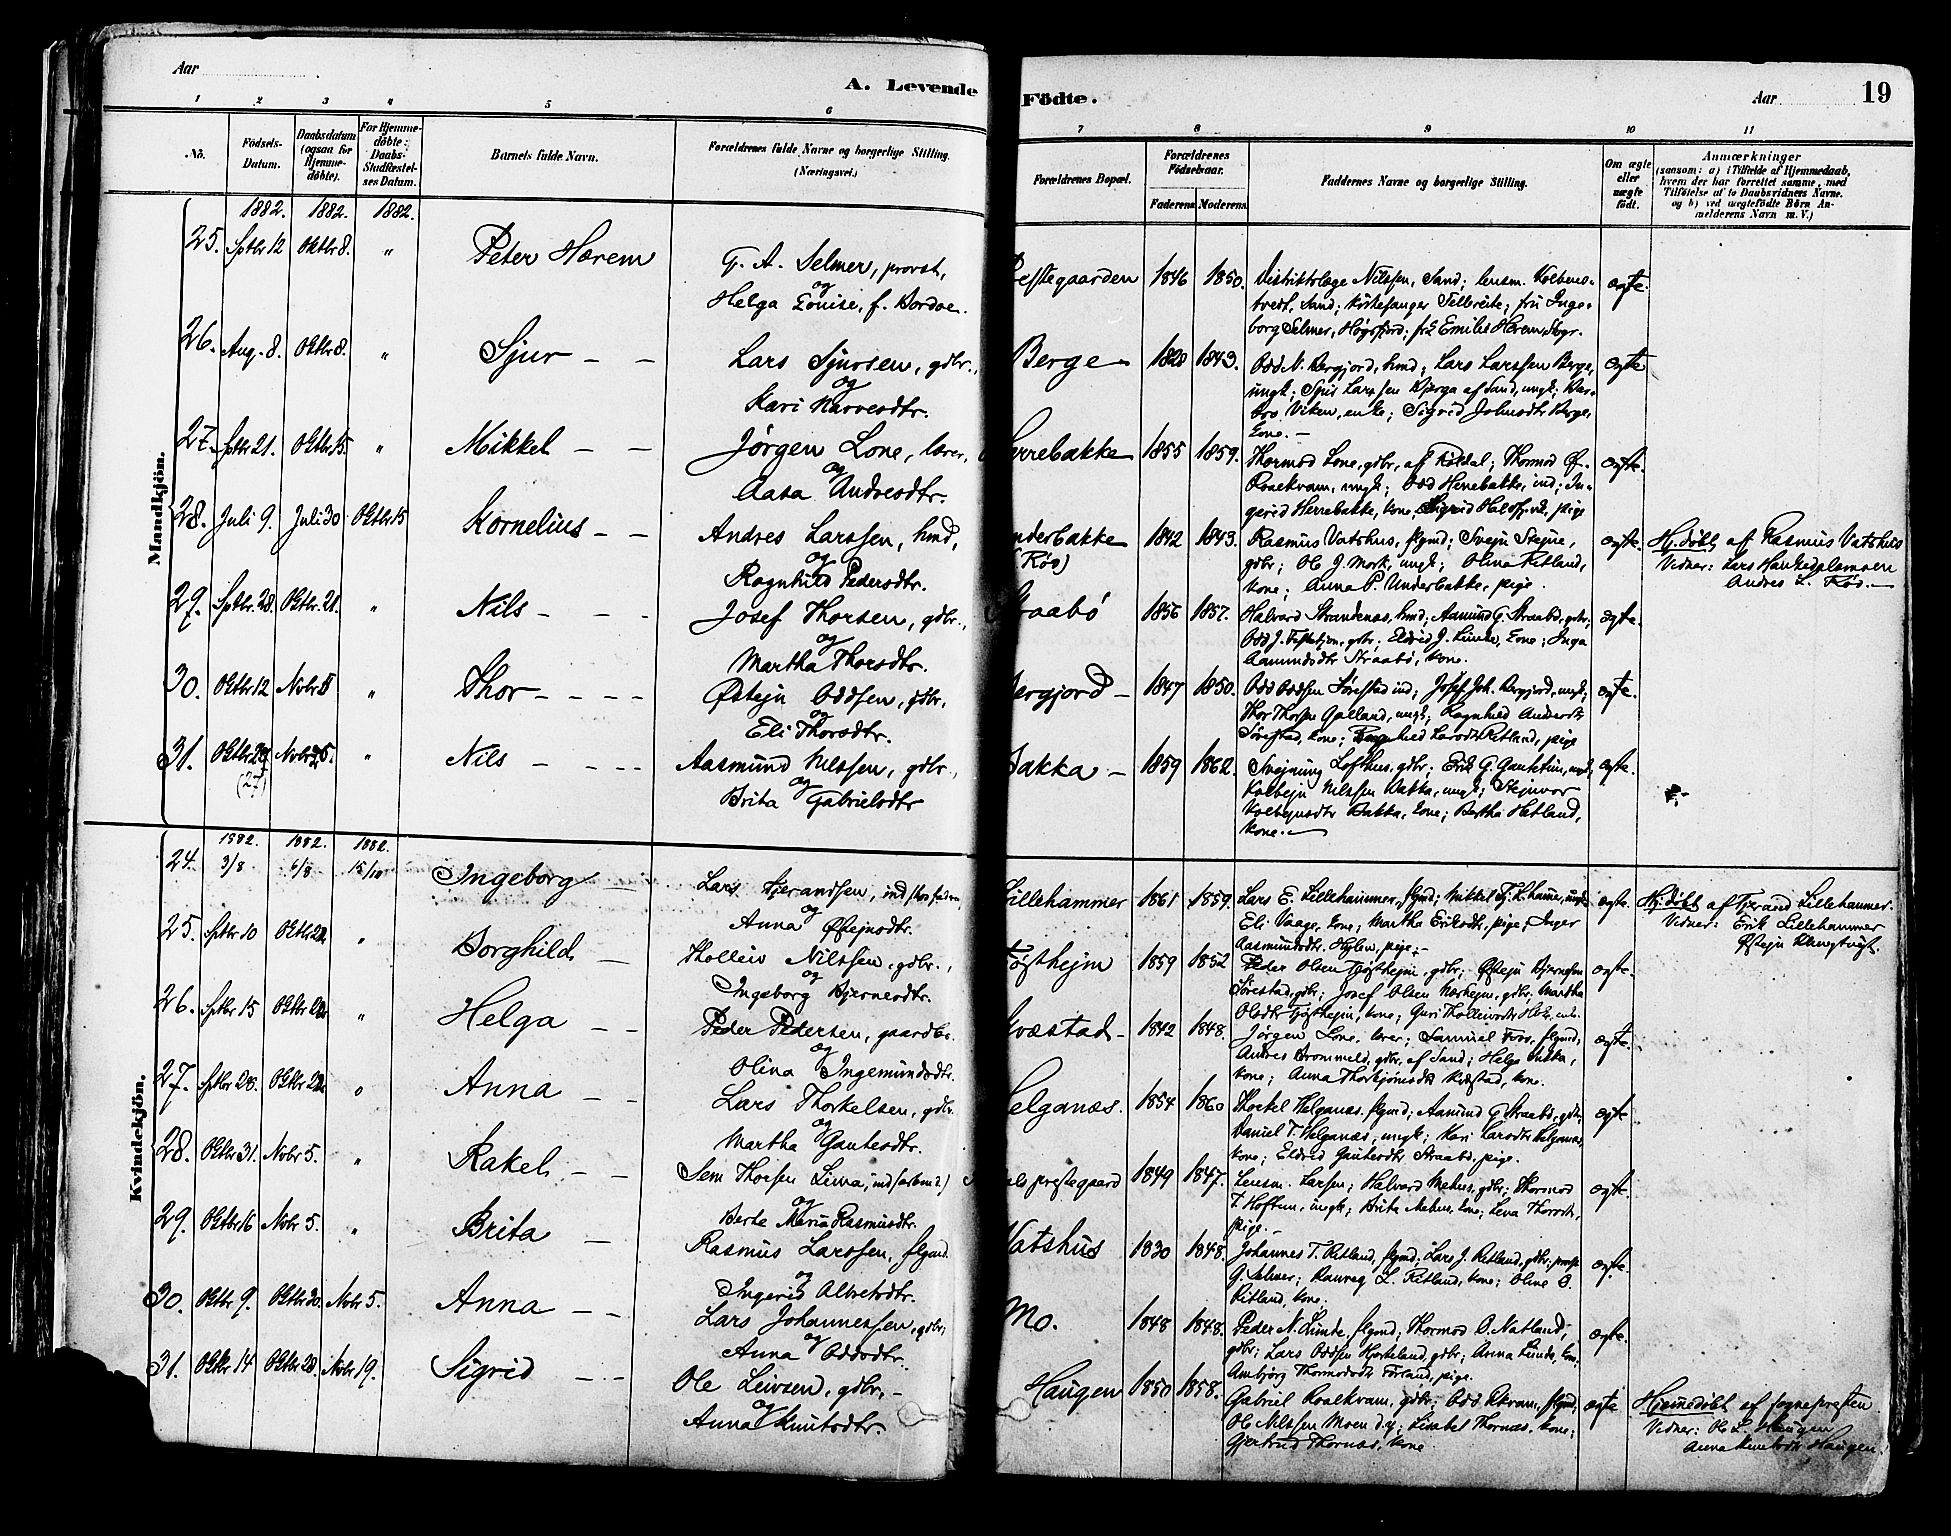 Aar
A. Levende
Födte.
Aar
19
1 2 3 4 5 6 7 8 9 10 11
No.
Födsels-
Datum.
Daabsdatum
(ogsaa for
Hjemme-
döbte).
For Hjemme-
döbte:
Daabs-
Stadfæstel-
ses Datum.
Barnets fulde Navn.
Forældrenes fulde Navne og borgerlige Stilling.
(Næringsvei.)
Forældrenes Bopæl.
Forældrenes
Födselsaar.
Faderens Moderens
Faddernes Navne og borgerlige Stilling.
Om ægte
eller
uægte
født.
Anmærkninger
(saasom: a) i Tilfælde af Hjemmedaab,
hvem der har forrettet samme, med
Tilföielse af to Daabsvidners Navne.
og b) ved uægtefödte Börn An-
melderens Navn m. V.)
Mandkjön.
1882. 1882. 1882.
25. Sptbr 12 Oktbr 8. " Peter Hærem
G. A. Selmer, provst,
og
Helga Louise, f.
Prestegaarden 1846 1850.
Distriktslæge Nilssen, Sand; lensm. Kolbens-
tvedt, Sand; kirkesanger Tellreite; fru Inge-
borg Selmer, Høgsfjord; frk Emilie Hærem,
ægte.
26. Aug. 8. Oktbr 8. " Sjur
Lars Sjursen, gdbr.,
og
Kari Narvesdtr.
Berge 1820 1843.
Odd N. Bergjord, hmd; Lars Larssen Berge,
ungk; Sjur Larssen Bjerga af Sand, ungk; Bar-
bro Viken, enke; Sigrid Johnsdtr Berge,
kone.
ægte
27. Sptbr 21. Oktbr 15. " Mikkel
Jørgen Lone, lærer,
og
Aasa Andresdtr.
Herrebakke 1855 1859.
Thormod Lone, gdbr, af Røldal; Thormod
Roalkvam, ungk; Odd Herrebakke, ind; In-
gered Herrebakke, kone, Sigrid pige
ægte.
28. Juli 9. Juli 30 Oktbr 15 Kornelius
Andres Larssen, hmd,
og
Ragnhild Pedersdtr.
Underbakke
(Rød)
1842 1843.
Rasmus Vatshus, flgmd; Svejn Stejne,
gdbr; Ole J. Mork, ungk; Olina Ritland,
kone; Anna P. Underbakke, pige.
ægte.
Hj.døbt af Rasmus Vatshus
Vidner: Lars
Andres L. Rød.
29. Sptbr. 28. Oktbr. 21. " Nils
Josef Thorsen, gdbr.,
og
Martha Thorsdtr.
Straabø 1856 1857.
Halvard Strandenæs, hmd; Aamund G. Straabø, gdbr;
Odd J. gdbr; Eldrid J. Lunde, kone; Inga
Aamundsdtr Straabø, kone.
ægte.
30. Oktbr 12 Nobr 5 " Thor
Østejn Oddsen, gdbr,
og
Eli Thorsdtr.
Bergjord 1847 1850.
Odd Oddsen Sørestad ind; Josef Joh. Bergjord, ungk;
Thor Thorsen Galland, ungk; Ragnhild Andersdtr
Sørestad, kone; Ragnhild Larsdtr Ritland, pige
ægte.
31. Oktbr 29 Nobr 26. " Nils
(27)
Aasmund Nilssen, gdbr.,
og
Brita Gabrielsdtr
Bakka 1859 1862.
Svejnung Lofthus, gdbr; Erik G. Gautetun, ungk;
Kolbejn Nilssen Bakka, ungk; Stejnvor
Kolbejnsdtr Bakka, kone; Bertha Hetland,
kone.
ægte.
Kvindekjön.
1882. 1882. 1882.
24. 3/8 6/8 15/10 Ingeborg
Lars Tjerandsen, ind hos faderen
og
Anna Østejnsdtr.
Lillehammer 1861 1859.
Lars E. Lillehammer, flgmd; Mikkel Tj. L.hammer, ungk
Eli Vaage, kone; Martha Eriksdtr, pige; Inger
Aasmundsdtr. Hylen, pige.
ægte.
Hj.døbt af Tjerand Lillehammer.
Vidner: Erik Lillehammer
Østejn
25. Sptbr 10 Oktbr 22. " Borghild
Tholleiv Nilssen, gdbr.,
og
Ingeborg Bjernesdtr.
Tøsthejm 1859 1852
Peder Olsen Tjøsthejm, gdbr; Østejn Bjernesen
Sørestad, gdbr; Josef Olsen Nærhejm, gdbr; Martha
Olsdtr Tjøsthejm, kone; Guri Tholleivsdtr
ægte.
26. Sptbr 15 Oktbr 22 " Helga
Peder Pedersen, gaardbr.
og
Olina Ingemundsdtr.
Kvæstad 1842 1848.
Jørgen Lone, lærer; Samuel Foss, flgmd;
Andres Brommeld, gdbr, af Sand; Helga Bakka,
kone; Anna Thorbjörnsdtr Kvæstad, kone.
ægte.
27. Sptbr 28. Oktbr 22 " Anna
Lars Thorkelsen, gdbr.
og
Martha Gautesdtr.
Helganæs. 1854 1860
Thorkel Helganæs, flgmd; Aamund G. Straabø, gdbr;
Daniel T. Helganæs, ungk; Kari Larsdtr Helganæs,
kone; Eldrid Gautesdtr Straabø, pige.
ægte
28. Oktbr 31. Nobr 5. " Rakel
Sem Thorsen Lima, ind (arbmd.)
og
Berte Maria Rasmusdtr.
prestegaard 1849 1847.
Lensm. Larsen; Halvard Mehus, gdbr; Thormod
T. Hoftun, ungk; Brita Mehus, kone; Lena Thorsdtr,
pige.
ægte.
29. Oktbr 16 Nobr 5. " Brita
Rasmus Larssen, flgmd.
og
Ingerid Albretsdtr.
Vatshus 1830 1848.
Johannes T. Ritland, flgmd; Lars J. Ritland, gdbr; provst
G. Selmer; Ranveg L. Ritland, kone; Oline O.
Ritland, kone.
ægte.
30. Oktbr 9. Oktbr 30. Nobr 5. Anna
Lars Johannessen, gdbr;
og
Anna Oddsdtr.
Mo. 1848 1848.
Peder N. Lunde, flgmd; Thormod O. Natland,
gdbr; Lars Oddsen Hjorteland, gdbr; Anna Lunde, kone.
Anbjørg Thormodsdtr Førland, pige.
ægte.
31. Oktbr 14 Oktbr 28. Nobr 19. Sigrid
Ole Leivsen, gdbr,
og
Anna Knutsdtr.
Haugen 1850 1858.
Gabriel Roalkvam, gdbr; Odd flgmd;
Ole Nilssen Moen d.y; Lisabet Thornæs, kone;
Gjertrud Thornæs, kone
ægte
Hjemmedøbt af sognepresten
Vidner: Ole L. Haugen
Anna Knutsdtr Haugen.